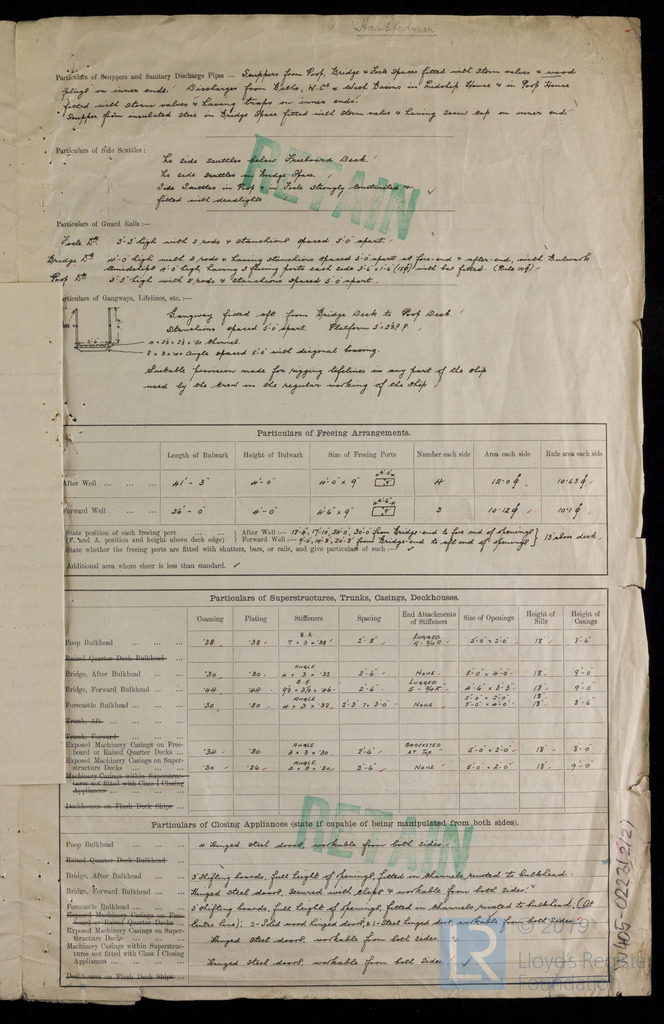 Particulars of Scuppers and Sanitary Discharge Pipes — Scuppers from Poop, Bridge & Focle spaces fitted with storm valves & wood
plugs on inner ends. Discharges from Baths, W.C.s & Wash Basins in Midship House & in Poop House
fitted with storm valves & having traps on inner ends.
Scupper from insulated store in Bridge Space fitted with storm valve & having screw cap on inner end.
Particulars of Side Scuttles :
No side scuttles below Freeboard Deck.
No side scuttles in Bridge Space.
Side Scuttles in Poop & in Focle strongly constructed &
fitted with deadlights
RETAIN
Particulars of Guard Rails :—
Focle Dk. 3'-3" high with 2 rods & stanchions spaced 5'-0" apart.
Bridge Dk. 4'-0" high with 3 rods & having stanchions spaced 5'-0" apart at fore-end & after-end, with Bulwark
amidships 4'-0" high having 3 freeing ports each side with bar fitted.
Poop Dk. 3'-3" high with 2 rods & stanchions spaced 5'-0" apart.
Particulars of Gangways, Lifelines, etc. :—
Gangway fitted aft from Bridge Deck to Poop Deck.
Stanchions spaced 5'-0" apart. Platform
Channel.
Angle spaced 5'-0" with diagonal bracing.
Suitable provision made for rigging lifelines in any part of the ship
used by the crew in the regular working of the ship
Particulars of Freeing Arrangements.
Length of Bulwark Height of Bulwark Size of Freeing Ports Number each side Area each side Rule area each side
After Well 41'-3" 4'-0" 4'-0" x 9" 4 12.0 10.63
Forward Well 36'-0" 4'-0" 4'-6" x 9" 3 10.12 10.1
State position of each freeing port After Well :— from Bridge end to fore end of openings
(F. and A. position and height above deck edge) Forward Well :— from Bridge end to aft end of openings 13" above deck
State whether the freeing ports are fitted with shutters, bars, or rails, and give particulars of such :—
Additional area where sheer is less than standard.
Particulars of Superstructures, Trunks, Casings, Deckhouses.
Coaming Plating Stiffeners Spacing End Attachments of Stiffeners Size of Openings Height of Sills Height of Casings
Poop Bulkhead .38 .38 B.A. 7 x 3 x .38 2'-5" LUGGED 5'-0" x 2'-0" 18" 8'-6"
Raised Quarter Deck Bulkhead
Bridge, After Bulkhead .30 .30 ANGLE 4 x 3 x .32 2'-6" NONE 5'-0" x 4'-0" 18" 9'-0"
Bridge, Forward Bulkhead .44 .44 B.A. 2'-6" LUGGED 4'-6" x 3'-3" 18" 9'-0"
Forecastle Bulkhead .30 .30 ANGLE 4 x 3 x .32 2'-3" to 3'-0" NONE 5'-0" x 2'-0" 5'-0" x 4'-0" 18" 18" 8'-6"
Trunk, Aft
Trunk, Forward
Exposed Machinery Casings on Free-
board or Raised Quarter Decks .34 .30 ANGLE 4 x 3 x .30 2'-6" BRACKETED AT TOP 5'-0" x 2'-0" 18" 8'-0"
Exposed Machinery Casings on Super-
structure Decks .30 .26 ANGLE 3 x 3 x .30 2'-6" NONE 5'-0" x 2'-0" 18" 9'-0"
Machinery Casings within Superstruc-
tures not fitted with Class I Closing
Appliances
Deckhouses on Flush Deck Ships
RETAIN
Particulars of Closing Appliances (state if capable of being manipulated from both sides).
Poop Bulkhead 4 Hinged steel doors, workable from both sides.
Raised Quarter Deck Bulkhead
Bridge, After Bulkhead 3" Shifting boards, full height of openings, fitted in channels riveted to bulkhead.
Bridge, Forward Bulkhead Hinged steel doors, secured with clips & workable from both sides.
Forecastle Bulkhead 3" Shifting boards, full height of openings, fitted in channels riveted to bulkhead. (At
Exposed Machinery Casings on Free-
board or Raised Quarter Decks centre line); 2-Solid wood hinged doors, & 1-Steel hinged door, workable from both sides.
Exposed Machinery Casings on Super-
structure Decks Hinged steel doors, workable from both sides.
Machinery Casings within Superstruc-
tures not fitted with Class I Closing
Appliances Hinged steel doors, workable from both sides.
Deckhouses on Flush Deck Ships
W405-0223(2/2)
© 2019
LR
Lloyd's Register
Foundation